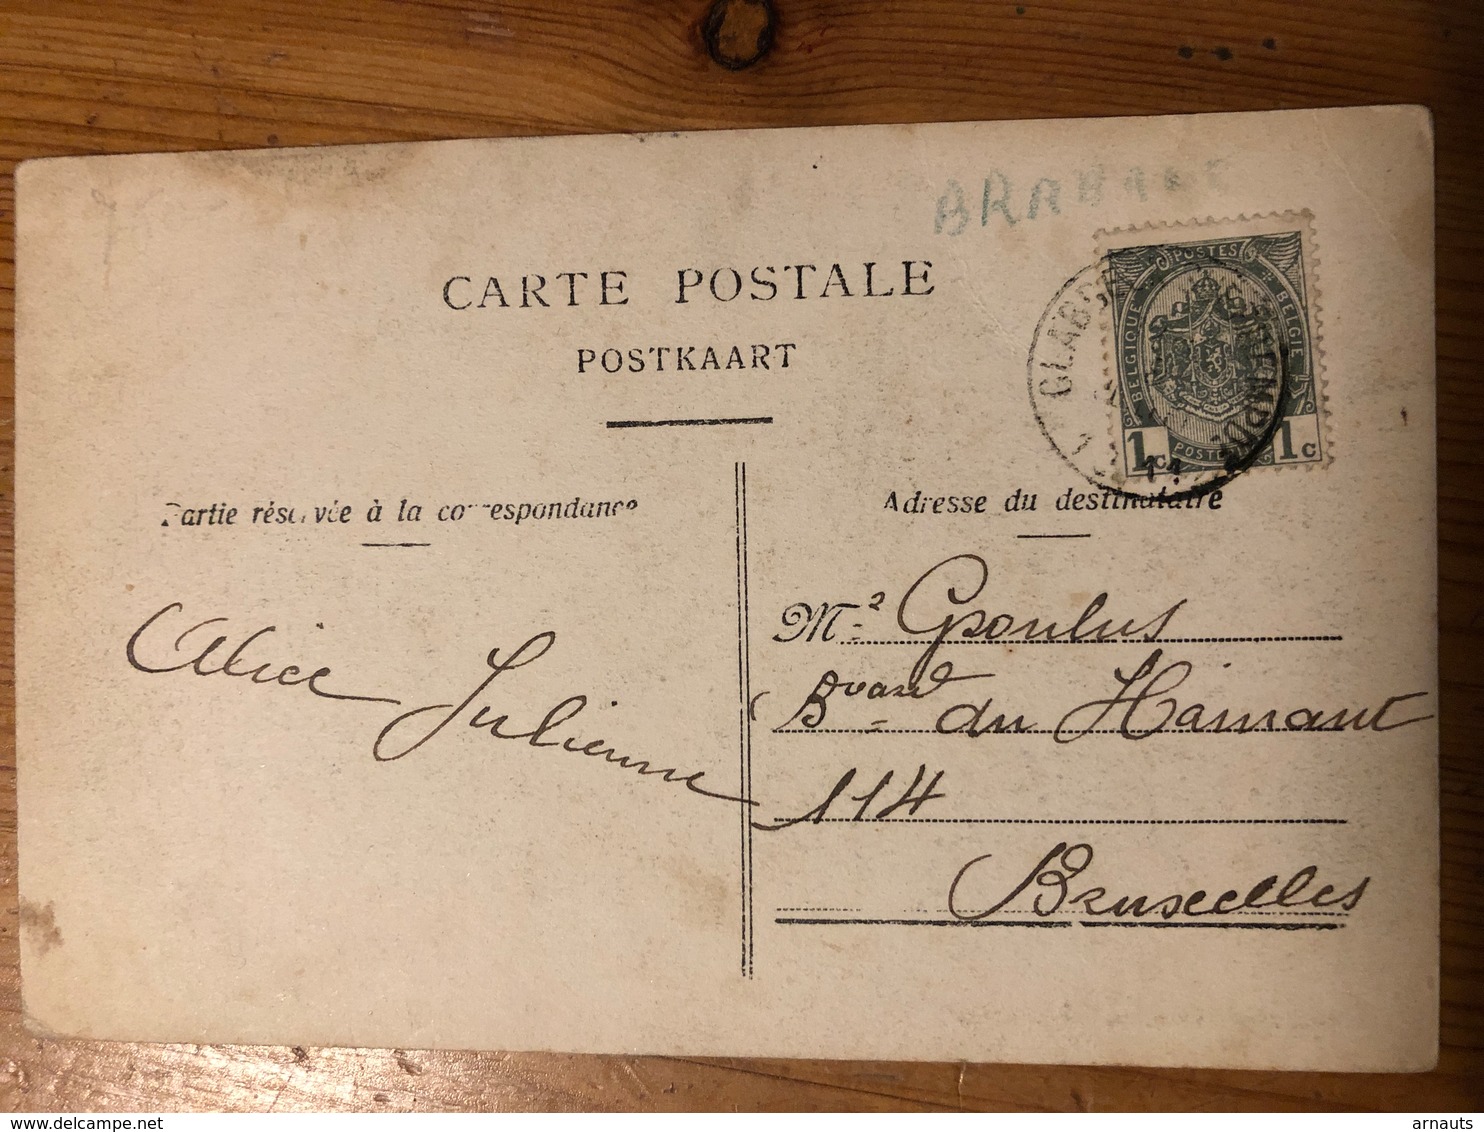 BRABANT
CARTE POSTALE
POSTKAART
POSTES
BELGIQUE
BELGIE
1c 1c
GLABBEEK
Partie réservée à la correspondance
Adresse du destinataire
Alice Julienne
Mr
Bvard du Hainaut
114
Bruxelles
arnauts